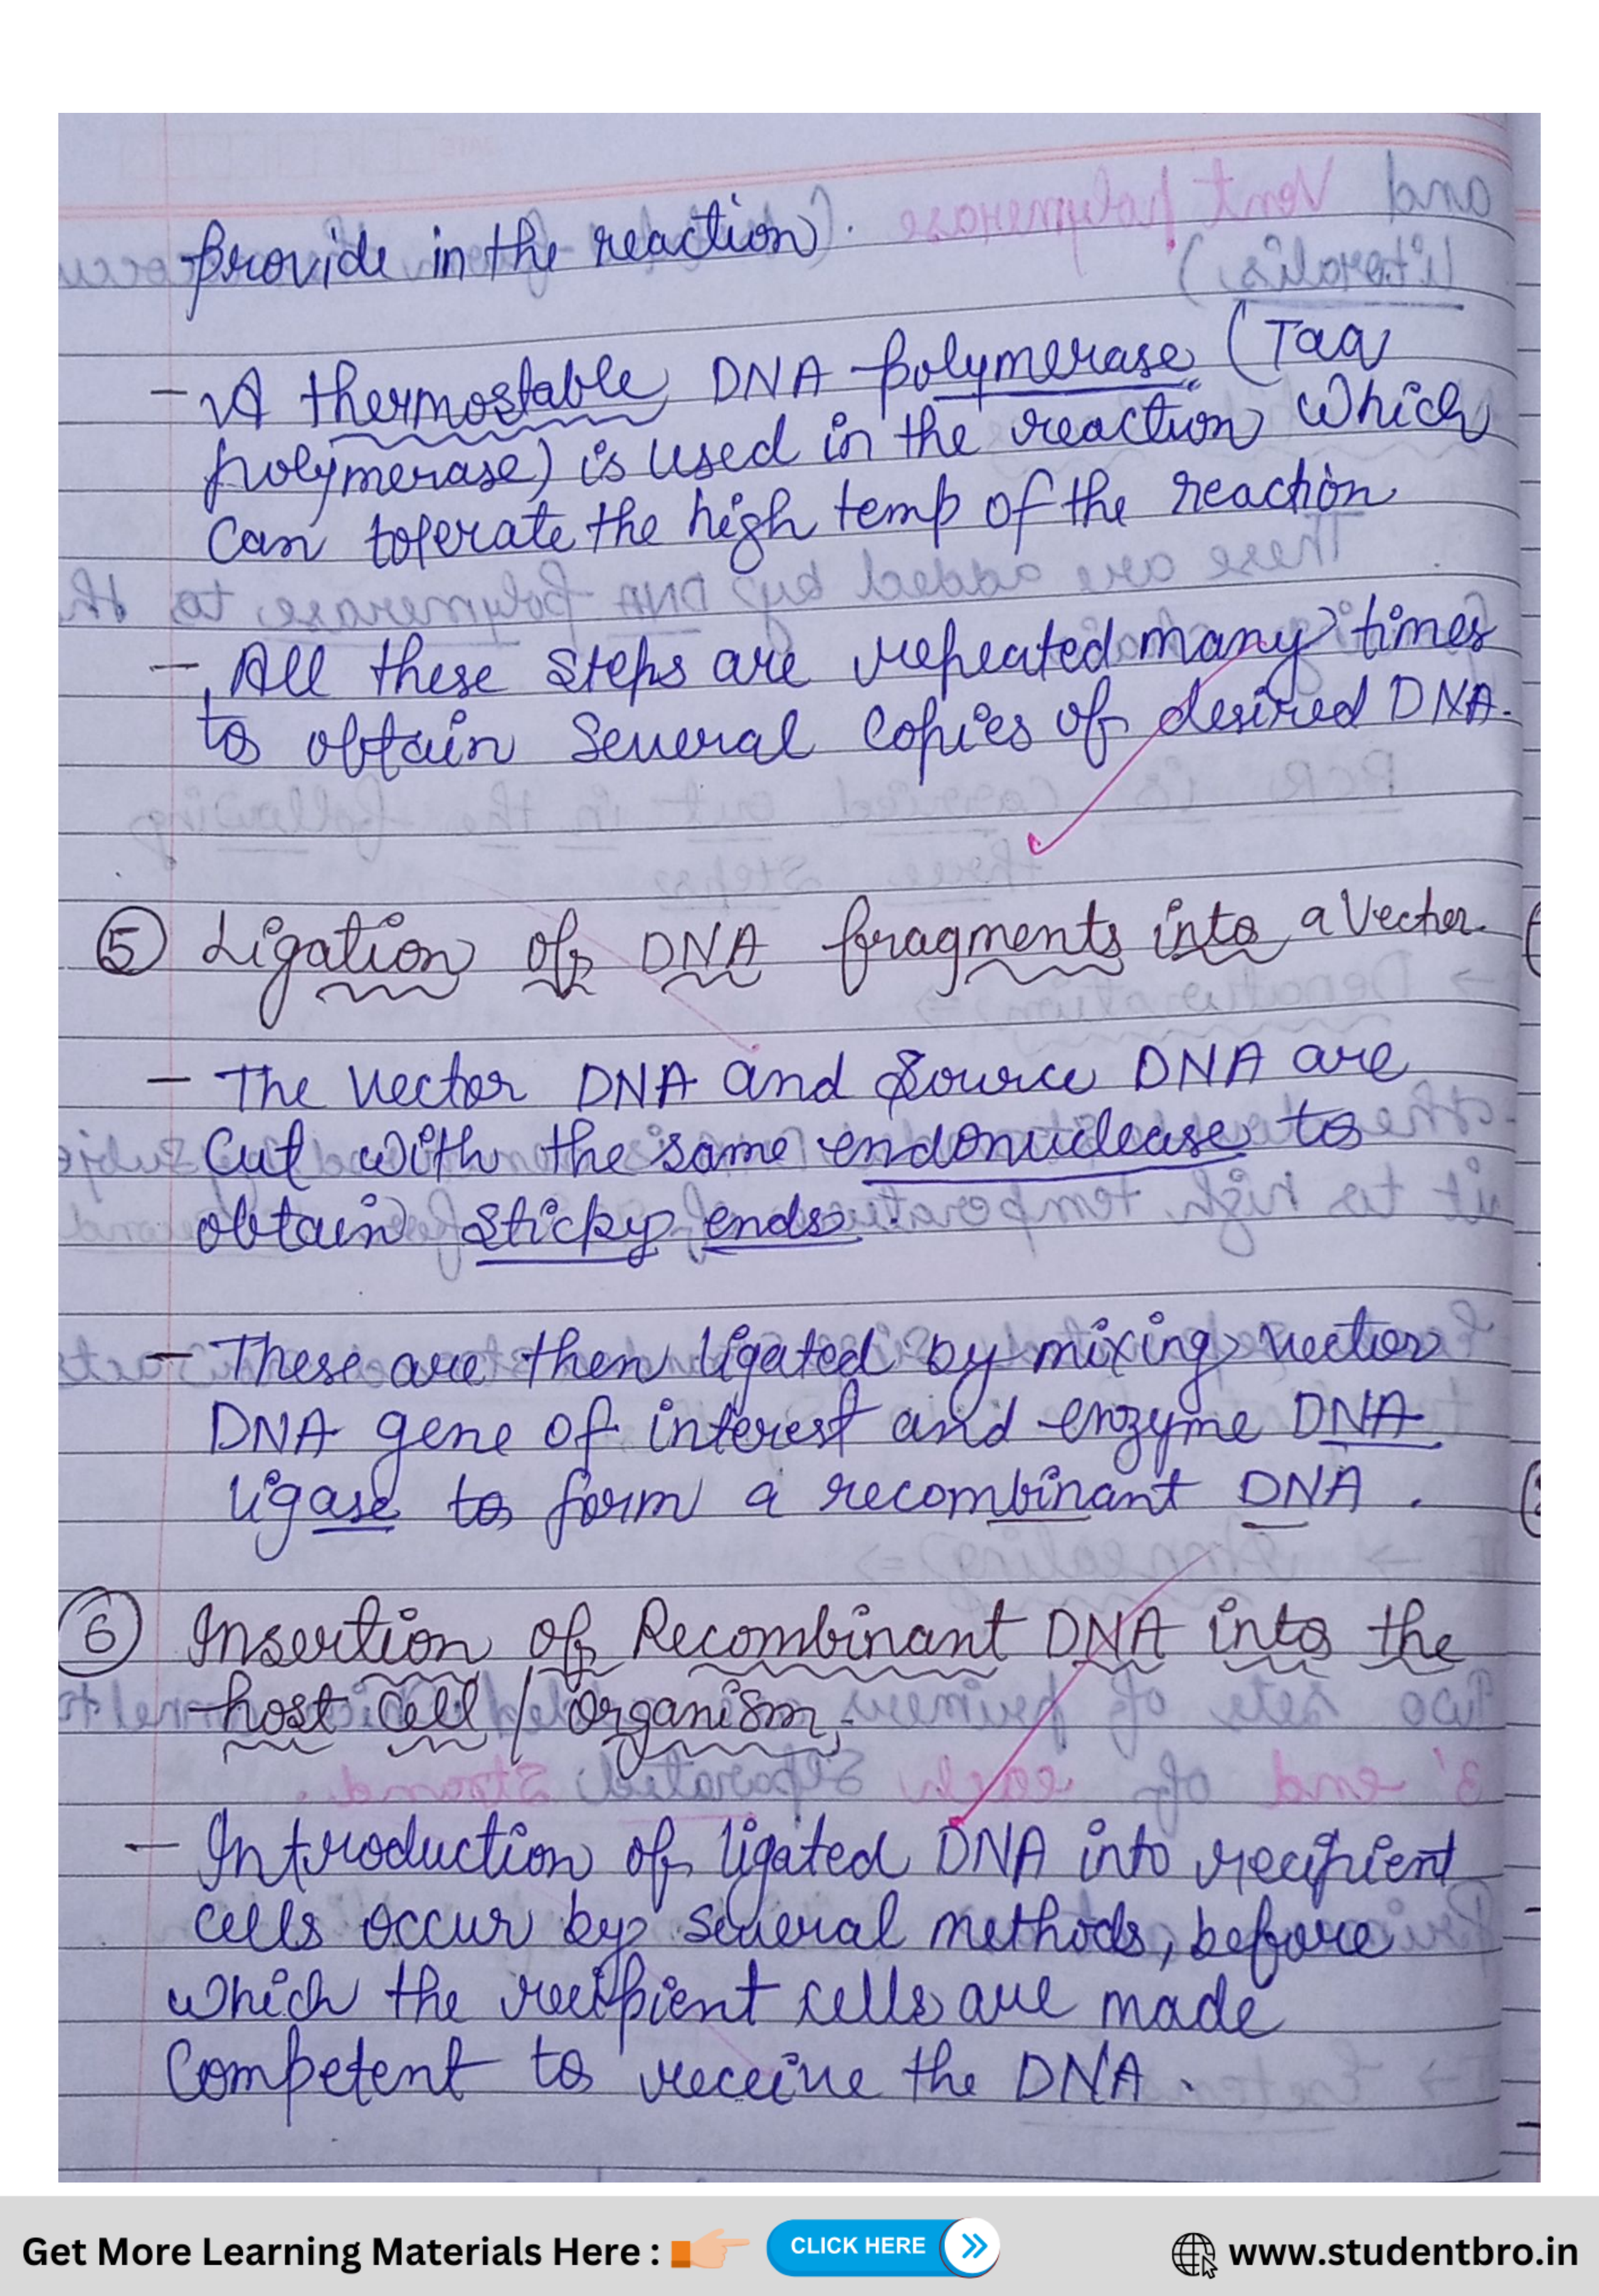 provide in the reaction.
- A thermostable DNA polymerase (Taq
polymerase) is used in the reaction which
can tolerate the high temp of the reaction
- All these steps are repeated many times
to obtain several copies of desired DNA.
⑤ Ligation of DNA fragments into a vector.
- The vector DNA and source DNA are
cut with the same endonuclease to
obtain sticky ends.
- These are then ligated by mixing vector
DNA gene of interest and enzyme DNA
ligase to form a recombinant DNA.
⑥ Insertion of Recombinant DNA into the
host cell / organism.
- Introduction of ligated DNA into recipient
cells occur by several methods, before
which the recipient cells are made
competent to receive the DNA.
Get More Learning Materials Here : CLICK HERE www.studentbro.in